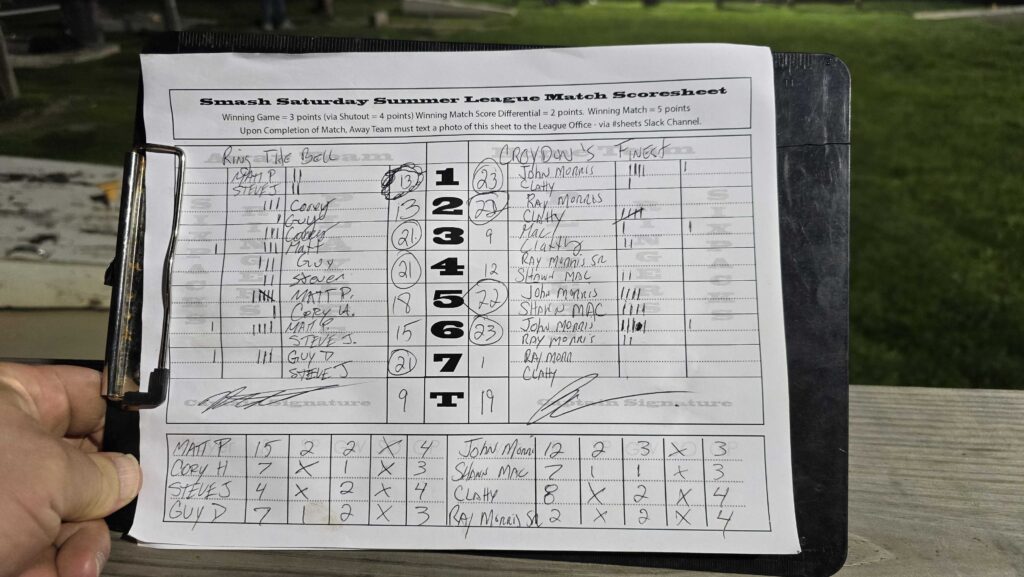 Smash Saturday Summer League Match Scoresheet
Winning Game = 3 points (via Shutout = 4 points) Winning Match Score Differential = 2 points. Winning Match = 5 points
Upon Completion of Match, Away Team must text a photo of this sheet to the League Office - via #sheets Slack Channel.
Ring The Bell CRAYDON'S FINEST
MATT P. 13 1 23 John Morris
STEVE J Clatty
Corey 13 2 22 RAY MORRIS
Guy Clatty
Corey 21 3 9 Mac
Matt Clatty
Guy 21 4 12 RAY MORRIS SR
Steven SHAWN MAC
MATT P. 18 5 22 John Morris
CORY H. SHAWN MAC
MATT P. 15 6 23 John Morris
STEVE J. RAY MORRIS
GUY D 21 7 1 RAY MORR
STEVE J Clatty
9 T 19
Captain Signature Captain Signature
MATT P. 15 2 2 X 4 John Morri 12 2 3 X 3
CORY H 7 X 1 X 3 SHAWN MAC 7 1 1 X 3
STEVE J 4 X 2 X 4 CLATTY 8 X 2 X 4
GUY D 7 1 2 X 3 RAY MORRIS SR 2 X 2 X 4